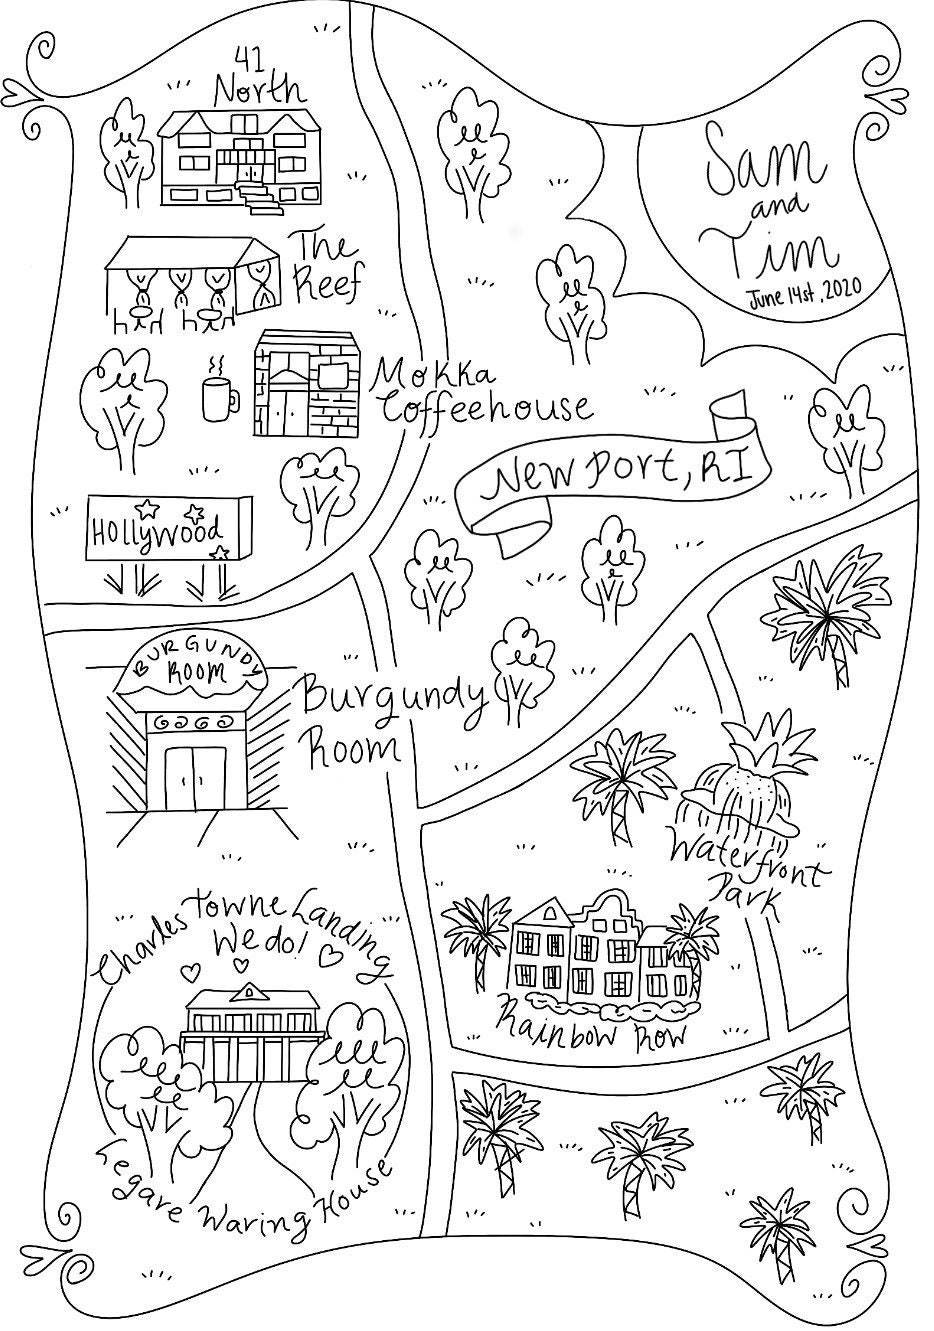 41
North
Sam
and
Tim
June 14st, 2020
The
Reef
Mokka
Coffeehouse
Newport, RI
Hollywood
BURGUNDY
ROOM
Burgundy
Room
Waterfront
Park
Charles Towne Landing
We do!
Rainbow Row
Legare Waring House